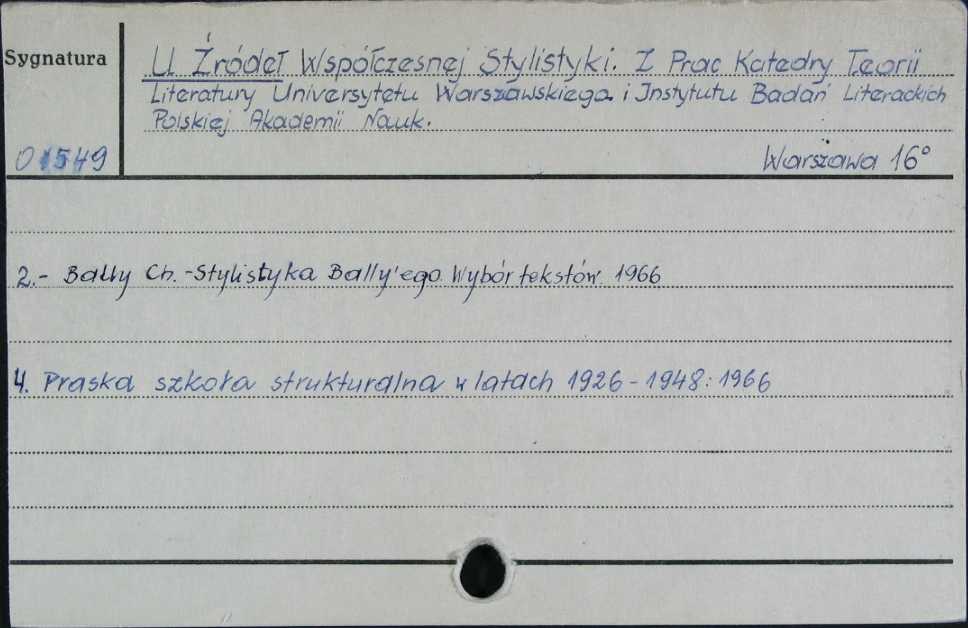 Sygnatura
U Źródeł Współczesnej Stylistyki. Z Prac Katedry Teorii
Literatury Uniwersytetu Warszawskiego i Instytutu Badań Literackich
Polskiej Akademii Nauk.
01549
Warszawa 16°
2.- Bally Ch. - Stylistyka Bally'ego. Wybór tekstów. 1966
4. Praska szkoła strukturalna w latach 1926 - 1948: 1966